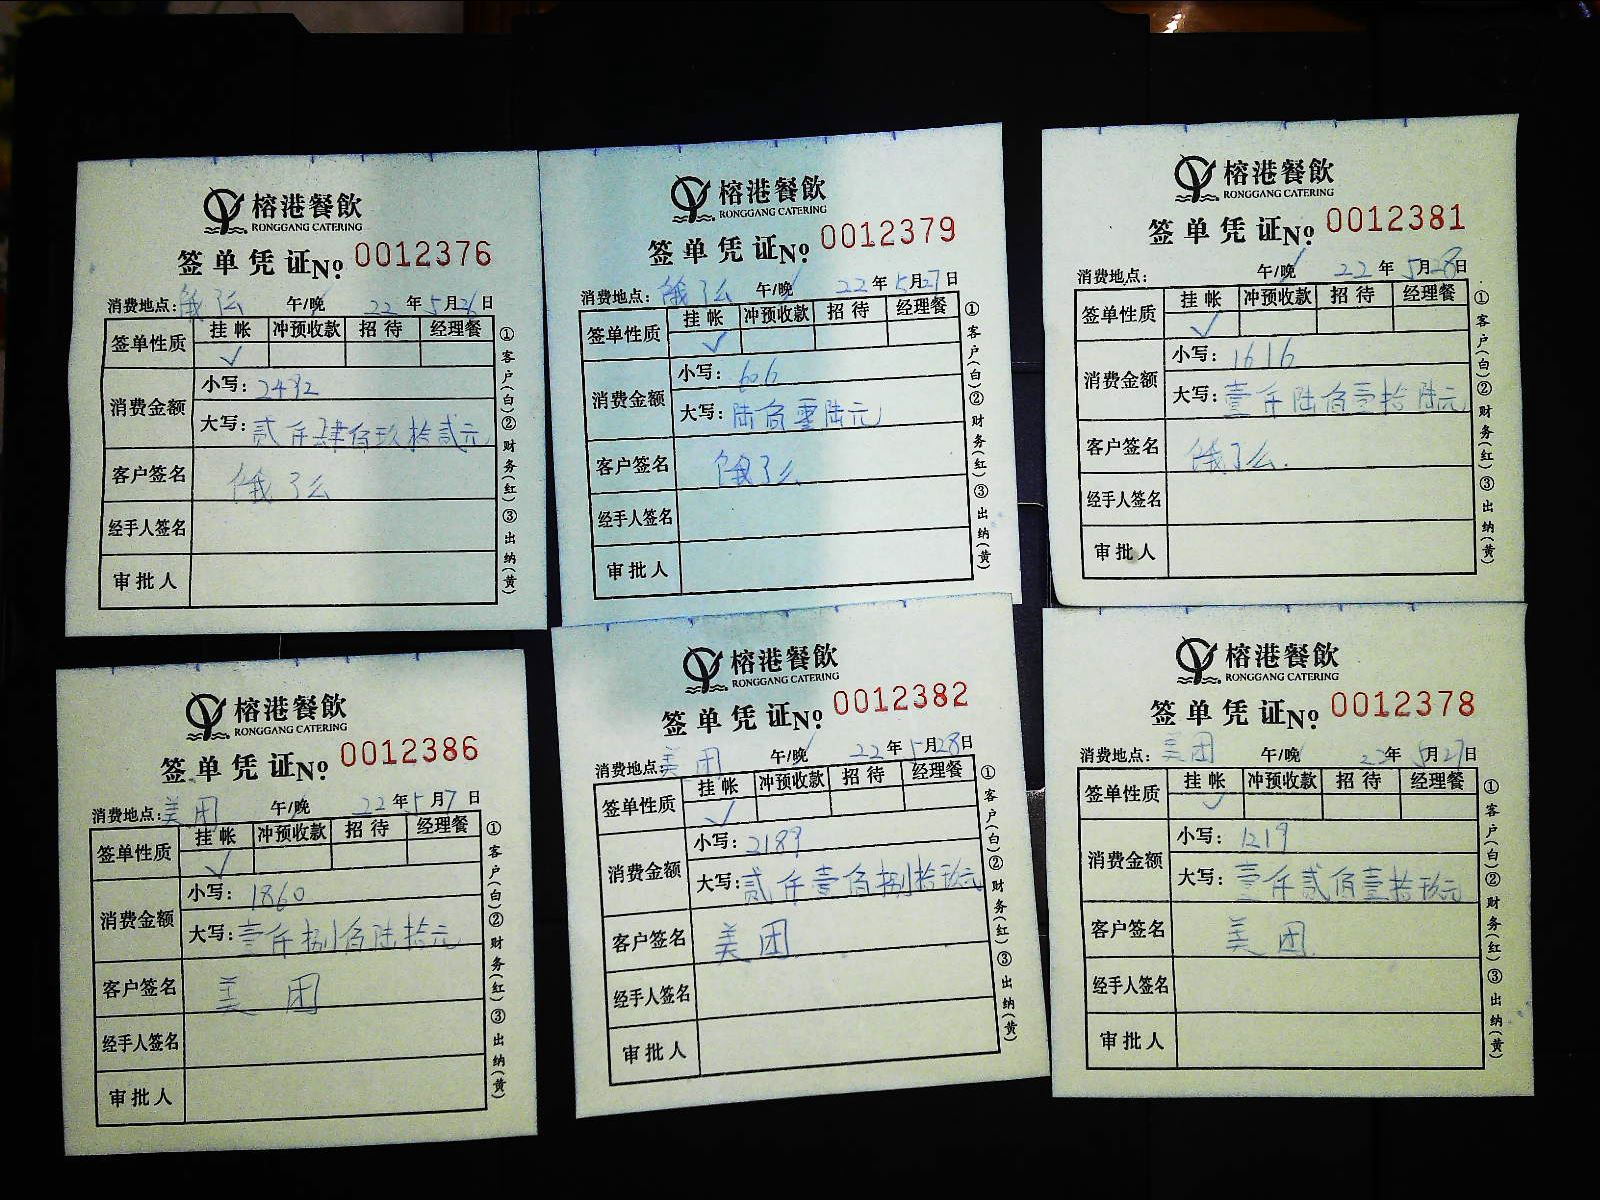 榕港餐飲
RONGGANG CATERING
签单凭证№ 0012376
消费地点：饿了么 午/晚 22年5月26日
签单性质 挂帐 冲预收款 招待 经理餐
✓
消费金额 小写：2492
大写：贰仟肆佰玖拾贰元
客户签名 饿了么
经手人签名
审批人
①客户(白)②财务(红)③出纳(黄)
榕港餐飲
RONGGANG CATERING
签单凭证№ 0012379
消费地点：饿了么 午/晚 22年5月27日
签单性质 挂帐 冲预收款 招待 经理餐
✓
消费金额 小写：606
大写：陆佰零陆元
客户签名 饿了么
经手人签名
审批人
①客户(白)②财务(红)③出纳(黄)
榕港餐飲
RONGGANG CATERING
签单凭证№ 0012381
消费地点： 午/晚 22年5月28日
签单性质 挂帐 冲预收款 招待 经理餐
✓
消费金额 小写：1616
大写：壹仟陆佰壹拾陆元
客户签名 饿了么.
经手人签名
审批人
①客户(白)②财务(红)③出纳(黄)
榕港餐飲
RONGGANG CATERING
签单凭证№ 0012386
消费地点：美团 午/晚 22年5月7日
签单性质 挂帐 冲预收款 招待 经理餐
✓
消费金额 小写：1860
大写：壹仟捌佰陆拾元
客户签名 美团
经手人签名
审批人
①客户(白)②财务(红)③出纳(黄)
榕港餐飲
RONGGANG CATERING
签单凭证№ 0012382
消费地点：美团 午/晚 22年5月28日
签单性质 挂帐 冲预收款 招待 经理餐
✓
消费金额 小写：2189
大写：贰仟壹佰捌拾玖元
客户签名 美团
经手人签名
审批人
①客户(白)②财务(红)③出纳(黄)
榕港餐飲
RONGGANG CATERING
签单凭证№ 0012378
消费地点：美团 午/晚 22年5月27日
签单性质 挂帐 冲预收款 招待 经理餐
✓
消费金额 小写：1219
大写：壹仟贰佰壹拾玖元
客户签名 美团
经手人签名
审批人
①客户(白)②财务(红)③出纳(黄)